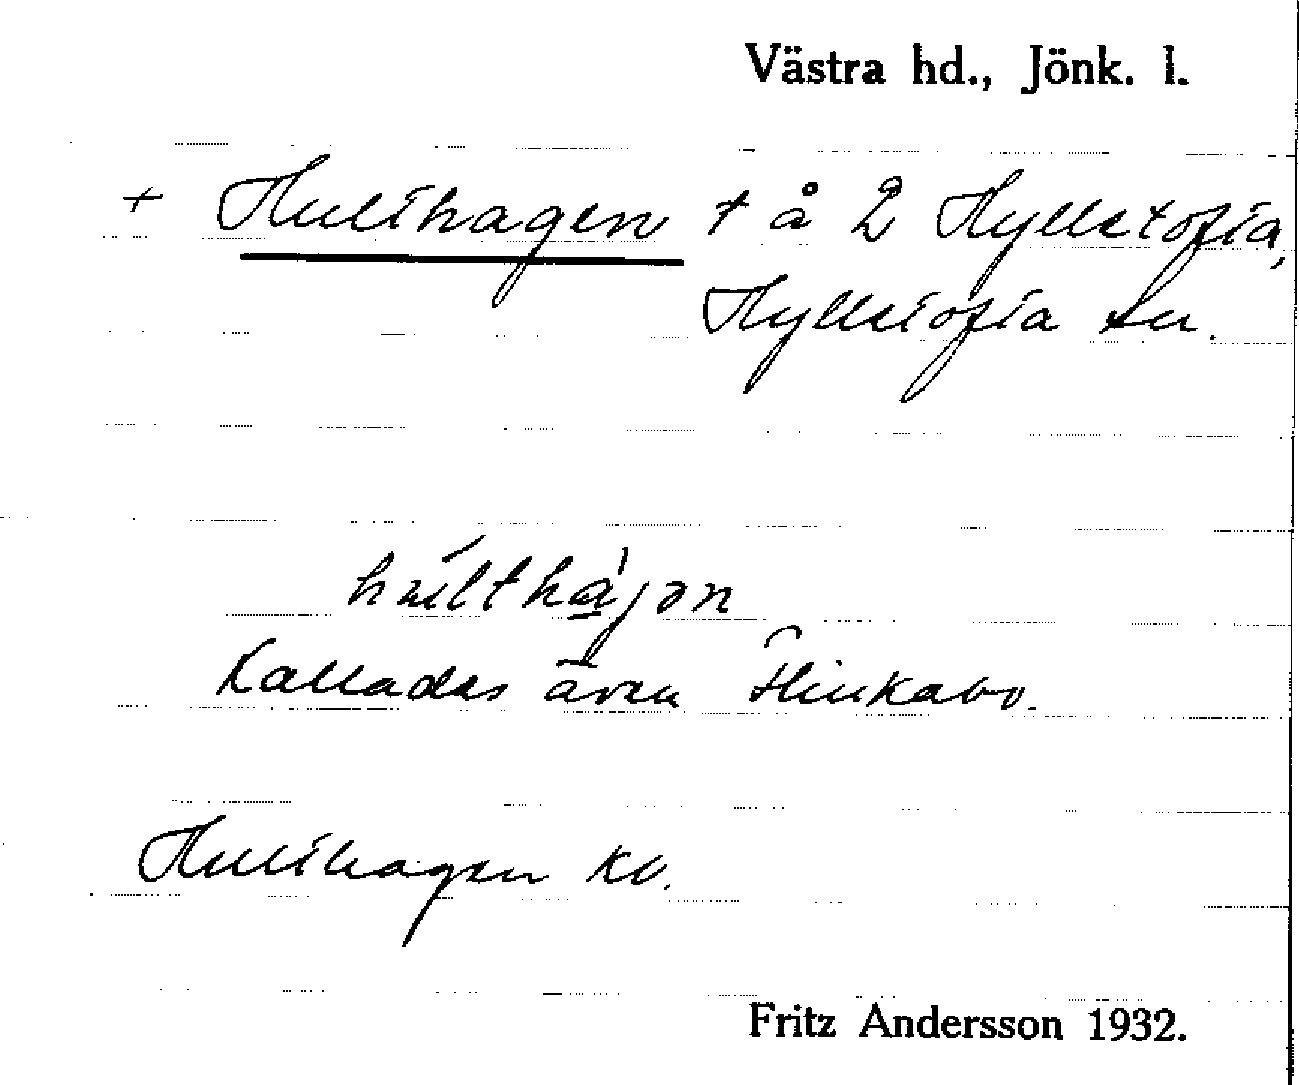 Västra hd., Jönk. l.
+ Hulthagen t å 2 Hyllstofta,
Hyllstofta sn.
hultha̱jən
Kallades även
Hulthagen kv.
Fritz Andersson 1932.